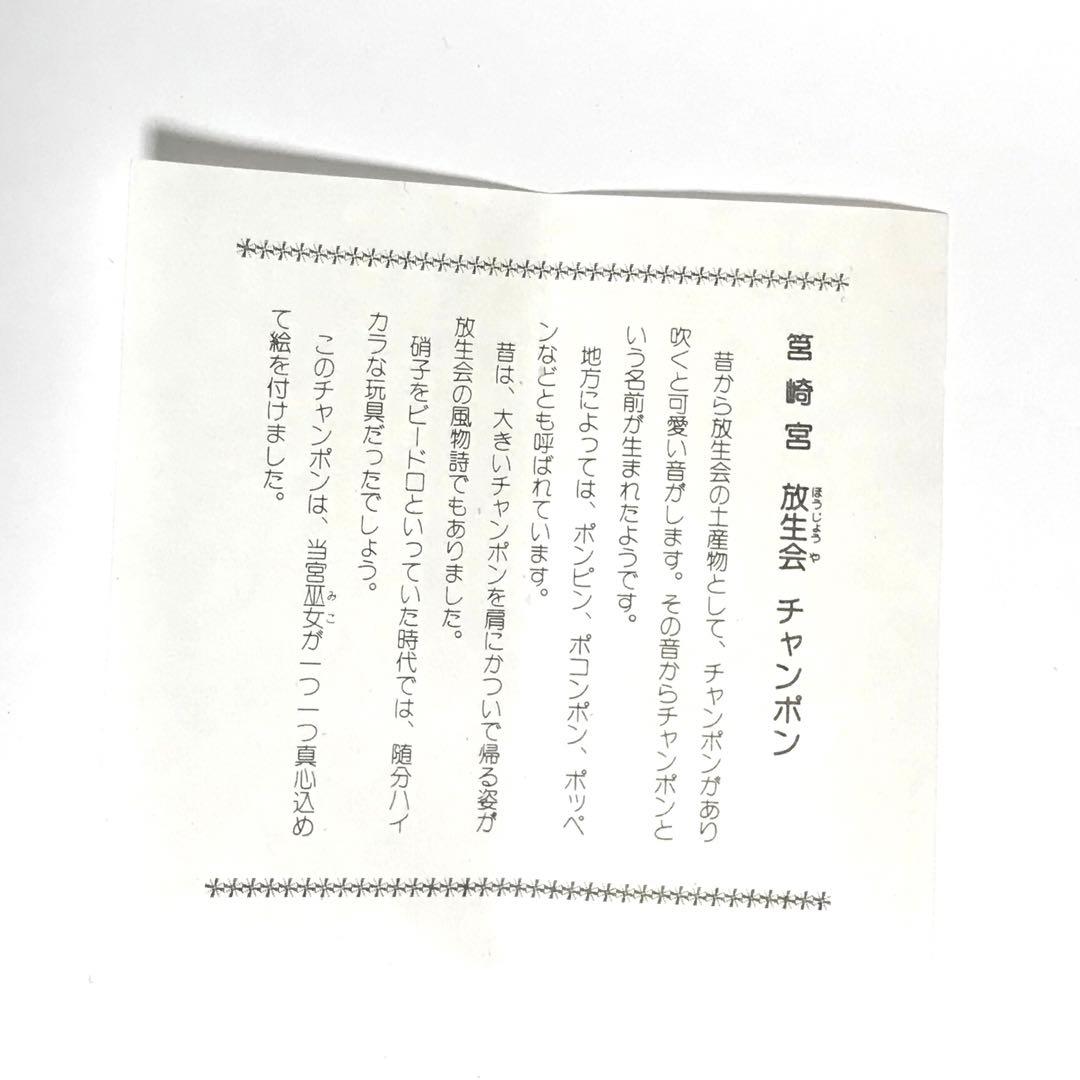 筥崎宮 放生会 チャンポン
ほうじょうや
昔から放生会の土産物として、チャンポンがあり
吹くと可愛い音がします。その音からチャンポンと
いう名前が生まれたようです。
地方によっては、ポンピン、ポコンポン、ポッペ
ンなどとも呼ばれています。
昔は、大きいチャンポンを肩にかついで帰る姿が
放生会の風物詩でもありました。
硝子をビードロといっていた時代では、随分ハイ
カラな玩具だったでしょう。
このチャンポンは、当宮巫女が一つ一つ真心込め
みこ
て絵を付けました。